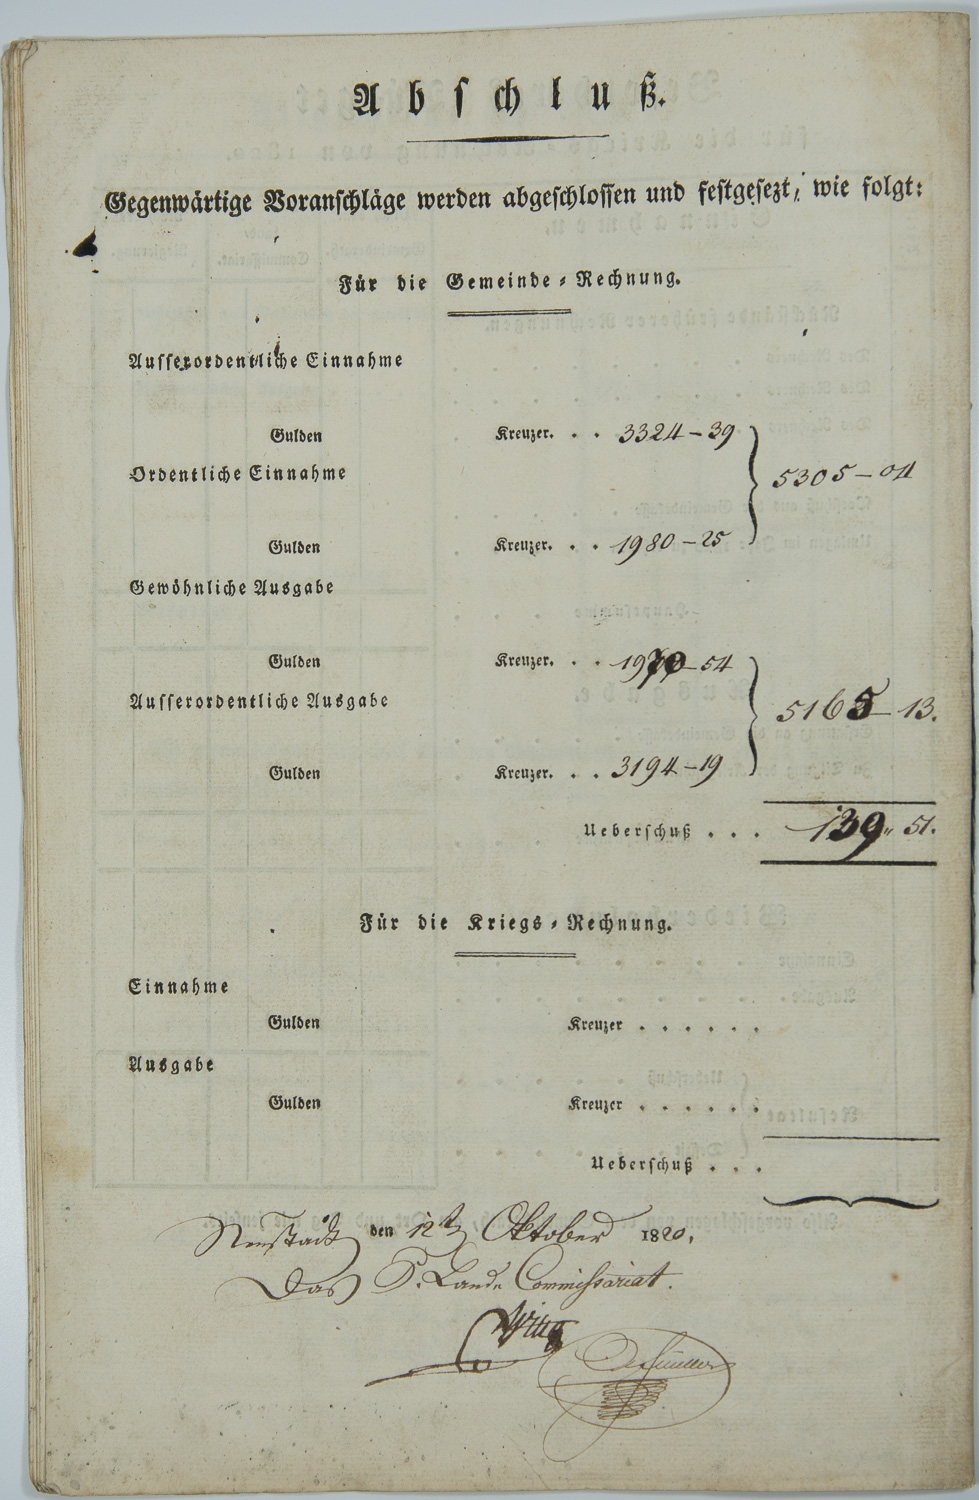 Abschluß.
Gegenwärtige Voranschläge werden abgeschlossen und festgesezt, wie folgt:
Für die Gemeinde-Rechnung.
Ausserordentliche Einnahme
Gulden Kreuzer. . . 3324-39
5305-04
Ordentliche Einnahme
Gulden Kreuzer. . . 1980-25
Gewöhnliche Ausgabe
Gulden Kreuzer. . . 1970-54
5165-13.
Ausserordentliche Ausgabe
Gulden Kreuzer. . . 3194-19
Ueberschuß . . . 139" 51.
Für die Kriegs-Rechnung.
Einnahme
Gulden Kreuzer . . . . . .
Ausgabe
Gulden Kreuzer . . . . . .
Ueberschuß . . .
Neustadt den 12ten Oktober 1820.
Das K. Lands Commissariat.